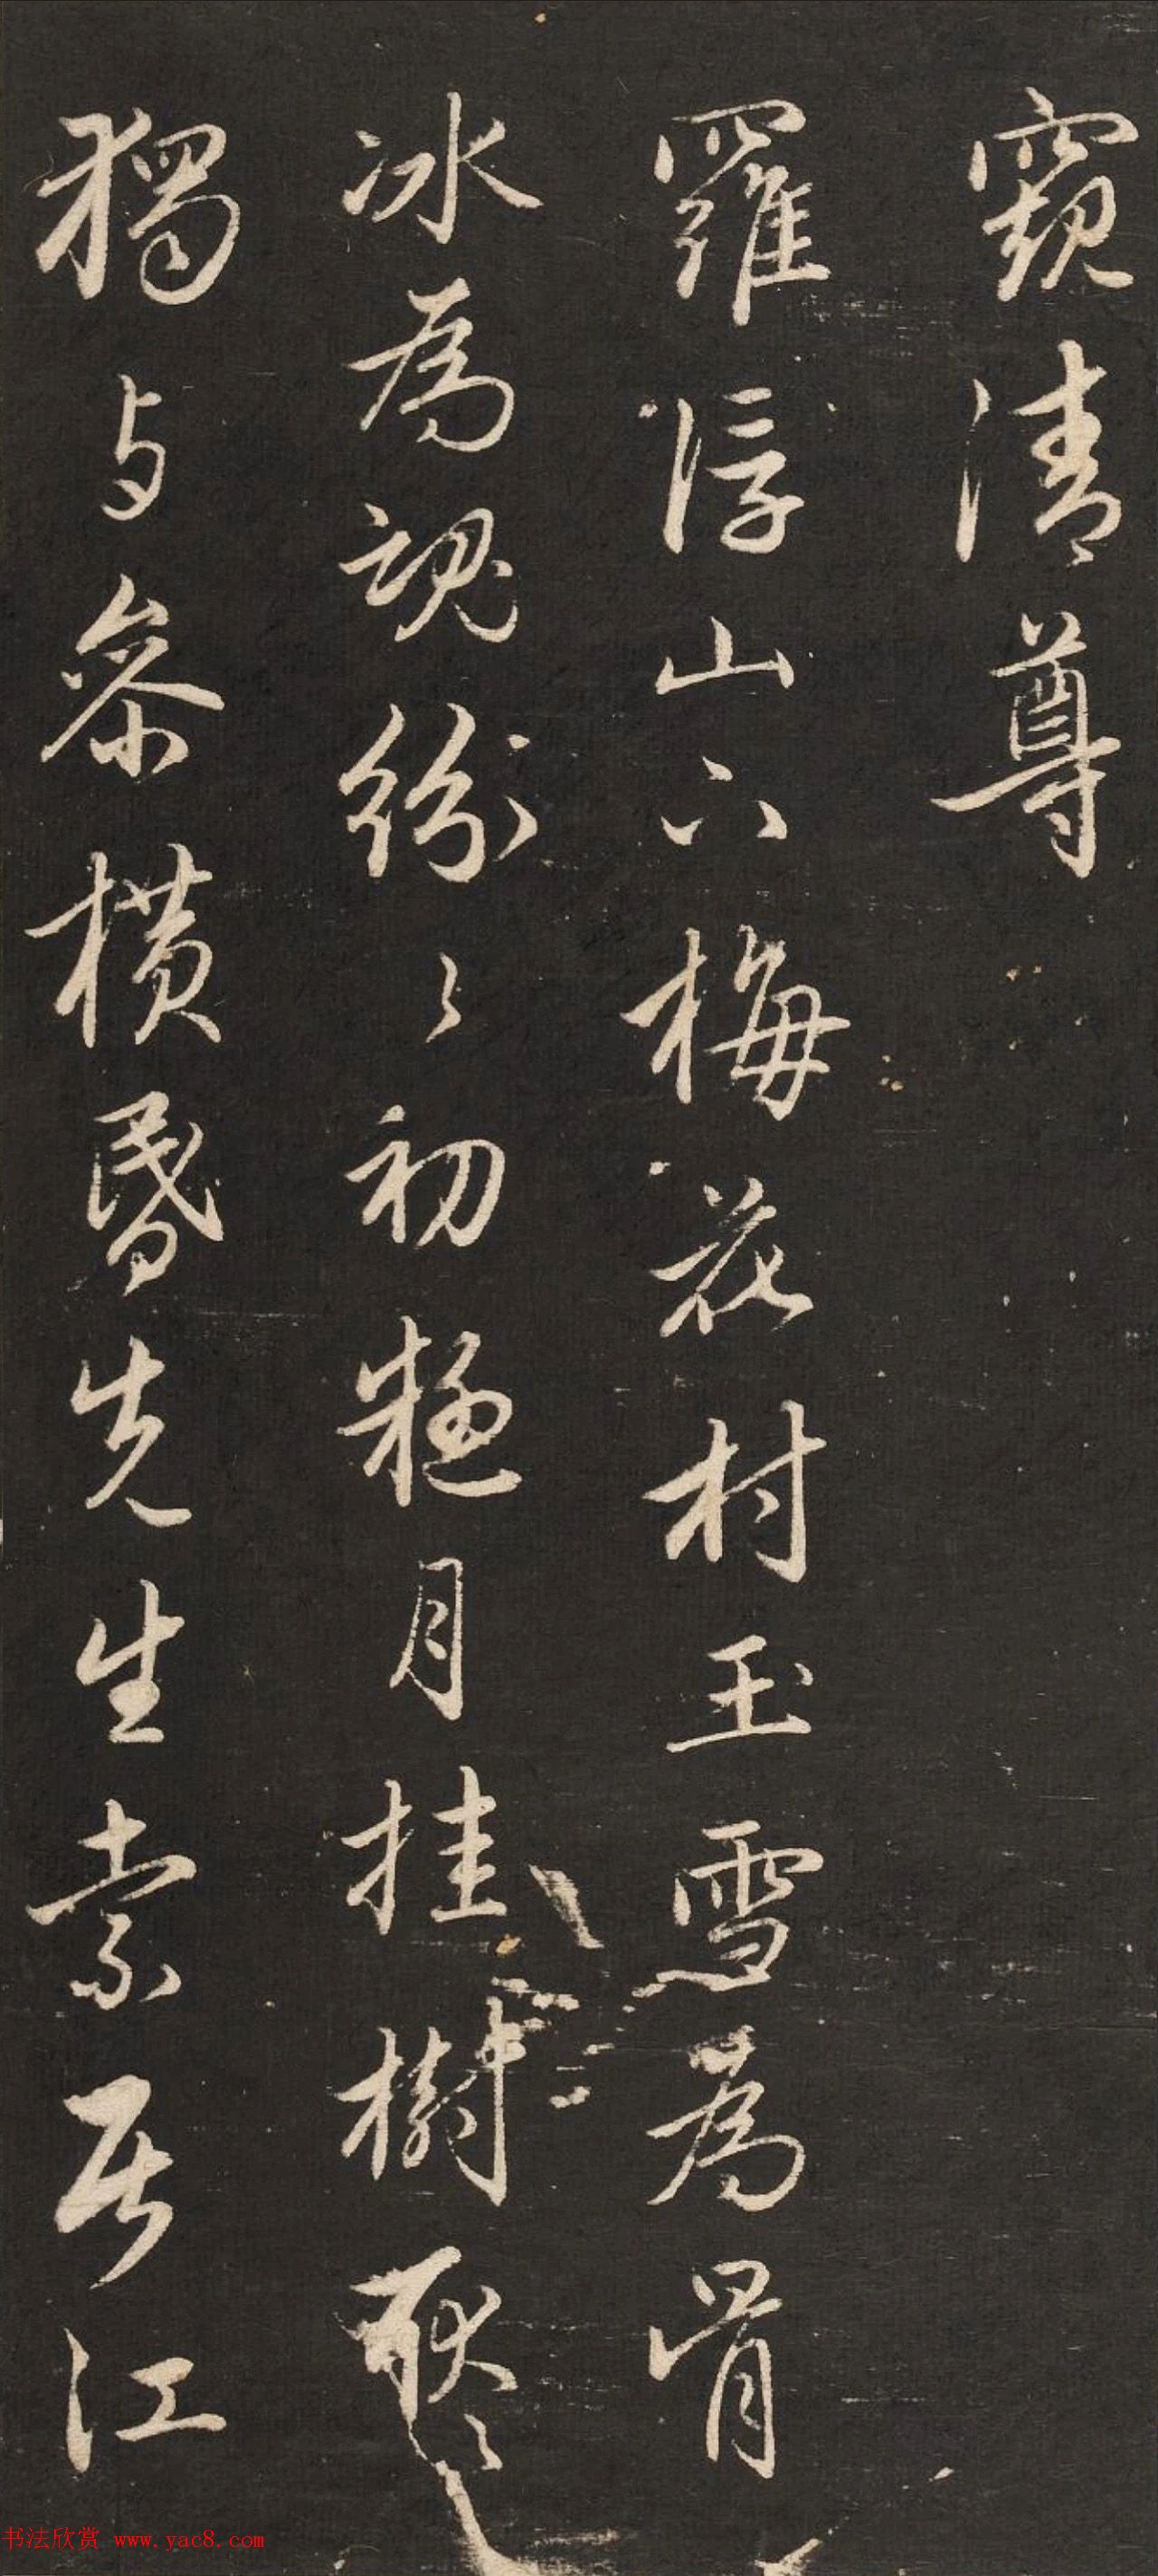 窺清尊
羅浮山下梅花村玉雪為骨
冰為魂紛〻初疑月挂樹耿〻
獨与參橫昏先生索居江
书法欣赏 www.yac8.com